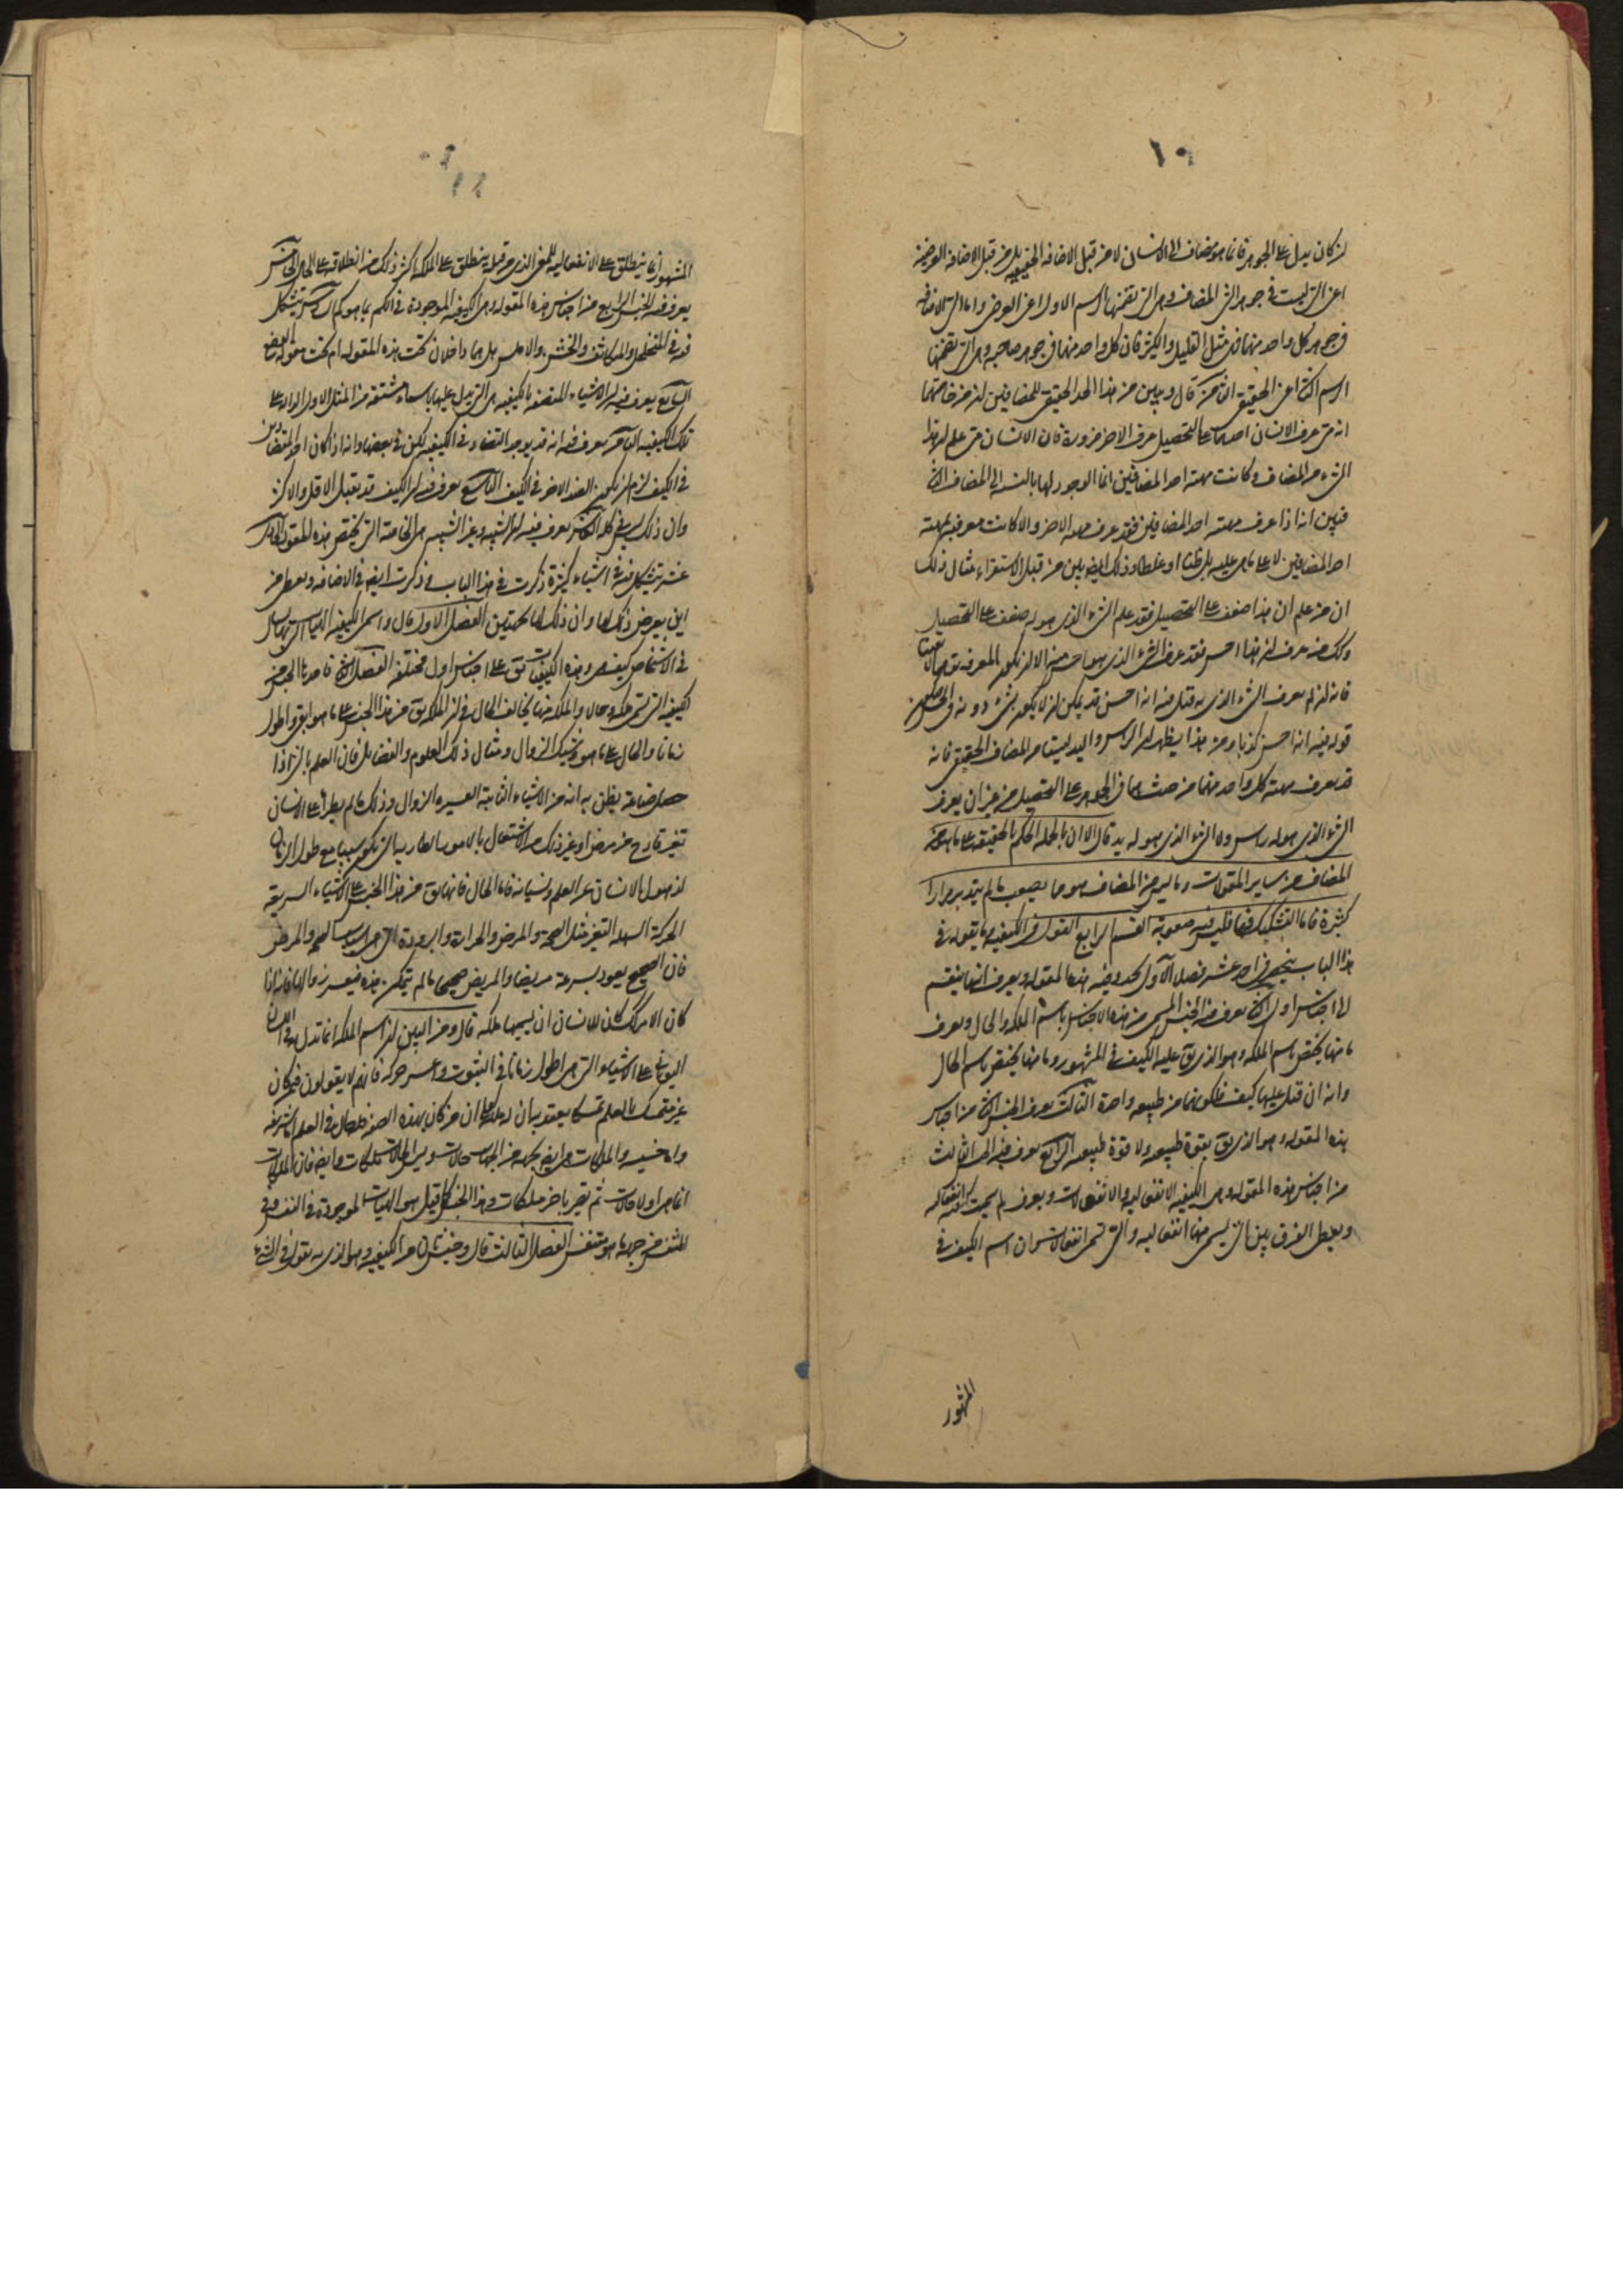 ١٩
ان كان يدل على الجوهر فانما هو مضاف الى الانسان لا من قبل الاضافة الحقيقية بل من قبل الاضافة العرضية
اعنى التى ليست فى جوهر الشئ المضاف وهى التى تضمنها الرسم الاول اعنى العرضى واما التى الاضافة
فى جوهر كل واحد منهما فمثل القليل والكثير فان كل واحد منهما فى جوهر صاحبه وهى التى تضمنها
الرسم الثانى اعنى الحقيقى قال وبين من هذا الحد الحقيقى للمضافين ان من خاصتهما
انه متى عرف الانسان احدهما على التحصيل عرف الاخر ضرورة فان الانسان متى علم ان هذا
الشئ من المضاف وكانت مهية احد المضافين انما الوجود لها بالنسبة الى المضاف الثانى
فبين انه اذا عرف مهية احد المضافين فقد عرف مهية الاخر والا كانت معرفته بمهية
احد المضافين لا على ما هى عليه بل ظنا او غلطا وذلك ايضا بين من قبل الاستقراء مثال ذلك
ان من علم ان هذا ضعف على التحصيل فقد علم الشئ الذى هو له ضعف على التحصيل
وكك من عرف ان هذا احسن فقد عرف الشئ الذى هو احسن منه الا ان تكون المعرفة
فانه ان لم يعرف الشئ الذى به قيل فيه انه احسن قد يمكن ان لا يكون شئ دونه فى الحسن
قوله فيه انه احسن كذبا ومن هذا يظهر ان الراس واليد ليستا من المضاف الحقيقى فانه
قد يعرف مهية كل واحد منهما من حيث هما فى الجوهر على التحصيل من غير ان يعرف
الشئ الذى هو له راس ولا الشئ الذى هو له يد قال الا ان بالجملة الحكم بالحقيقة على ما هو من
المضاف من ساير المقولات وما ليس من المضاف هو مما يصعب ما لم يتدبر مرارا
كثيرة فاما التشكيك فيها فليس فيه صعوبة القسم الرابع القول فى الكيفية ما يقوله فى
هذا الباب ينحصر فى احد عشر فصلا الاول يحد فيه هذه المقولة ويعرف انها ينقسم
الى اجناس اول الثانى يعرف فيه الجنس المسمى من هذه الاجناس باسم الملكة والحال ويعرف
ما منها يختص باسم الملكة وهو الذى يق عليه الكيف فى المشهور وما منها يختص باسم الحال
وانه ان قيل عليها كيف فلكونهما من طبيعة واحدة الثالث يعرف الجنس الثانى من اجناس
هذه المقولة وهو الذى يق بقوة طبيعية ولا قوة طبيعية الرابع يعرف فيه الجنس الثالث
من اجناس هذه المقولة وهى الكيفية الانفعالية والانفعالات ويعرف لم سميت كيفية انفعالية
ويعطى الفرق بين التى يسمى منها انفعالية والتى تسمى انفعالات وان اسم الكيف فى
المشهور
المشهور انما ينطلق على الانفعالية للمعنى الذى من قبله ينطلق على الملكة اكثر ذلك من انطلاقه على الحال الخامس
يعرف فيه الجنس الرابع من اجناس هذه المقولة وهى الكيفية الموجودة فى الكم بما هو كم السادس يتشكل
فيه فى المتخلخل والمتكاثف والخشن والاملس هل هما داخلان تحت هذه المقولة ام تحت مقولة الوضع
السابع يعرف فيه ان الاشياء المتصفة بالكيفية هى التى يدل عليها باسماء مشتقة من المثل الاول الدالة على
تلك الكيفية الثامن يعرف فيه انه قد يوجد التضاد فى الكيفية لكن فى بعضها وانه اذا كان احد المتضادين
فى الكيف لزم ان يكون الضد الاخر فى الكيف التاسع يعرف فيه ان الكيف قد يقبل الاقل والاكثر
وان ذلك ليس فى كله العاشر يعرف فيه ان الشبيه وغير الشبيه هى الخاصة التى تختص هذه المقولة الحادى
عشر يتشكل فيه فى اشياء كثيرة ذكرت فى هذا الباب وذكرت ايضا فى الاضافة ويعطى من
اين يعرض ذلك لها وان ذلك لها بجهتين الفصل الاول قال واسمى الكيفية الهيات التى بها يسأل
فى الاشخاص كيف هى وهذه الكيفيات يق على اجناس اول مختلفة الفصل الثانى فاحد هذا الجنس من
كيفية التى تسمى ملكة وحالا والملكة منها يخالف الحال فى ان الملكة يق من هذا الجنس على ما هو ابقى واطول
زمانا والحال على ما هو وشيك الزوال ومثال ذلك العلوم والفضايل فان العلم بالشئ اذا
حصل صناعة يظن به انه من الاشياء الثابتة العسيرة الزوال وذلك ما لم يطرا على الانسان
تغير فادح من مرض او غير ذلك من الاشتغال بالامور الطارية التى تكون سببا مع طول الزمان
لذهول الانسان عن العلم ونسيانه فاما الحال فانها يق من هذا الجنس على الاشياء السريعة
الحركة السهلة التغير مثل الصحة والمرض والحرارة والبرودة التى هى اسباب الصحة والمرض
فان الصحيح يعود بسرعة مريضا والمريض صحيحا ما لم يتمكن هذه فيعسر زوالها فانه اذا
كان الامر كك كان للانسان ان يسميها ملكة قال ومن البين ان اسم الملكة انما تدل به فى اللسان
اليونانى على الاشياء التى هى اطول زمانا فى الثبوت واعسر حركة فانهم لا يقولون فيمن كان
غير متمسك بالعلم تمسكا يعتد به ان له ملكة على ان من كان بهذه الصفة فله حال فى العلم اما شريفة
واما خسيسة والملكات هى ايضا بجهة من الجهات حالات وليس الحالات ملكات وايضا فان الملكات
انما هى اولا حالات ثم تصير باخره ملكات وهذا الجنس كما قيل هو الهيات الموجودة فى النفس وفى
المتنفس من جهة ما هو متنفس الفصل الثالث قال وجنس ثان من الكيفية وهو الذى به نقول فى الشئ